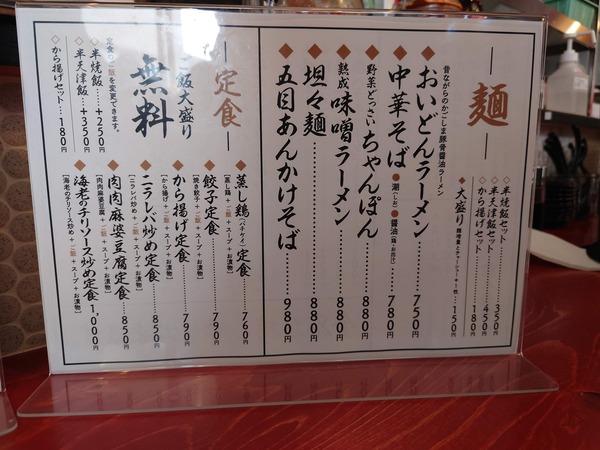 麺
昔ながらのかごしま豚骨醤油ラーメン
◆おいどんラーメン………750円
◆中華そば ●潮(しお) ●醤油(鶏・お出汁)……780円
◆野菜どっさいちゃんぽん……880円
◆熟成味噌ラーメン……880円
◆坦々麺……880円
◆五目あんかけそば……980円
◇半焼飯セット……350円
◇半天津飯セット……450円
◇から揚げセット……180円
◆大盛り 麺増量とチャーシュー+1枚……150円
定食
ご飯大盛り
無料
定食のご飯を変更できます。
◇半焼飯……+250円
◇半天津飯……+350円
◇から揚げセット……180円
◆蒸し鶏(バチアイ)定食……760円
[蒸し鶏+ご飯+スープ+お漬物]
◆餃子定食……790円
[焼き餃子+ご飯+スープ+お漬物]
◆から揚げ定食……790円
[から揚げ+ご飯+スープ+お漬物]
◆ニラレバ炒め定食……850円
[ニラレバ炒め+ご飯+スープ+お漬物]
◆肉肉麻婆豆腐定食……850円
[肉肉麻婆豆腐+ご飯+スープ+お漬物]
◆海老のチリソース炒め定食…1,000円
[海老のチリソース炒め+ご飯+スープ+お漬物]